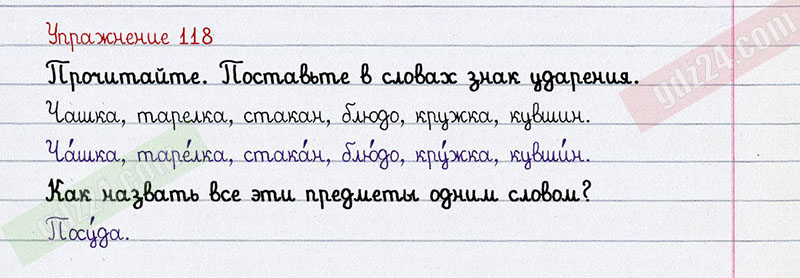 Упражнение 118
gdz24.com
Прочитайте. Поставьте в словах знак ударения.
Чашка, тарелка, стакан, блюдо, кружка, кувшин.
Ча́шка, таре́лка, стака́н, блю́до, кру́жка, кувши́н.
Как назвать все эти предметы одним словом?
Посу́да.
gdz24.com